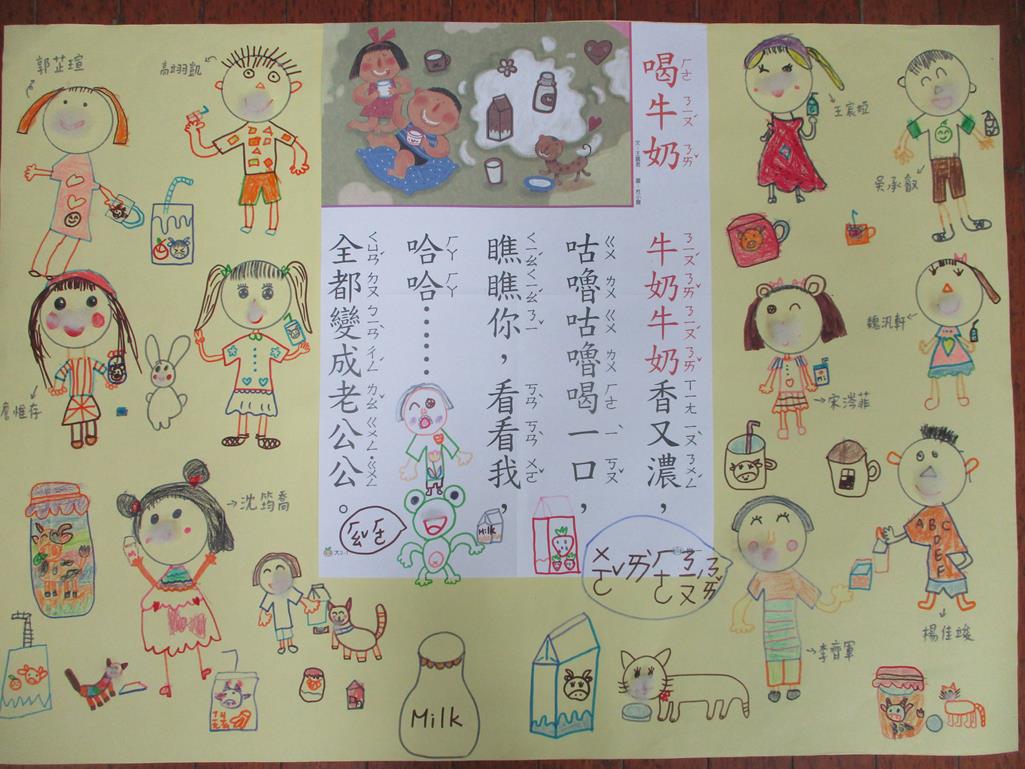 喝牛奶
牛奶牛奶香又濃，
咕嚕咕嚕喝一口，
瞧瞧你，看看我，
哈哈……
全都變成老公公。
郭芷瑄
高翊凱
王宸婭
吳承叡
魏汎軒
宋涔菲
沈筠喬
楊佳竣
李齊軍
ㄨㄛˇㄞˋㄏㄜㄋㄧㄡˊㄋㄞˇ
Milk
Milk
ABC
DE
F